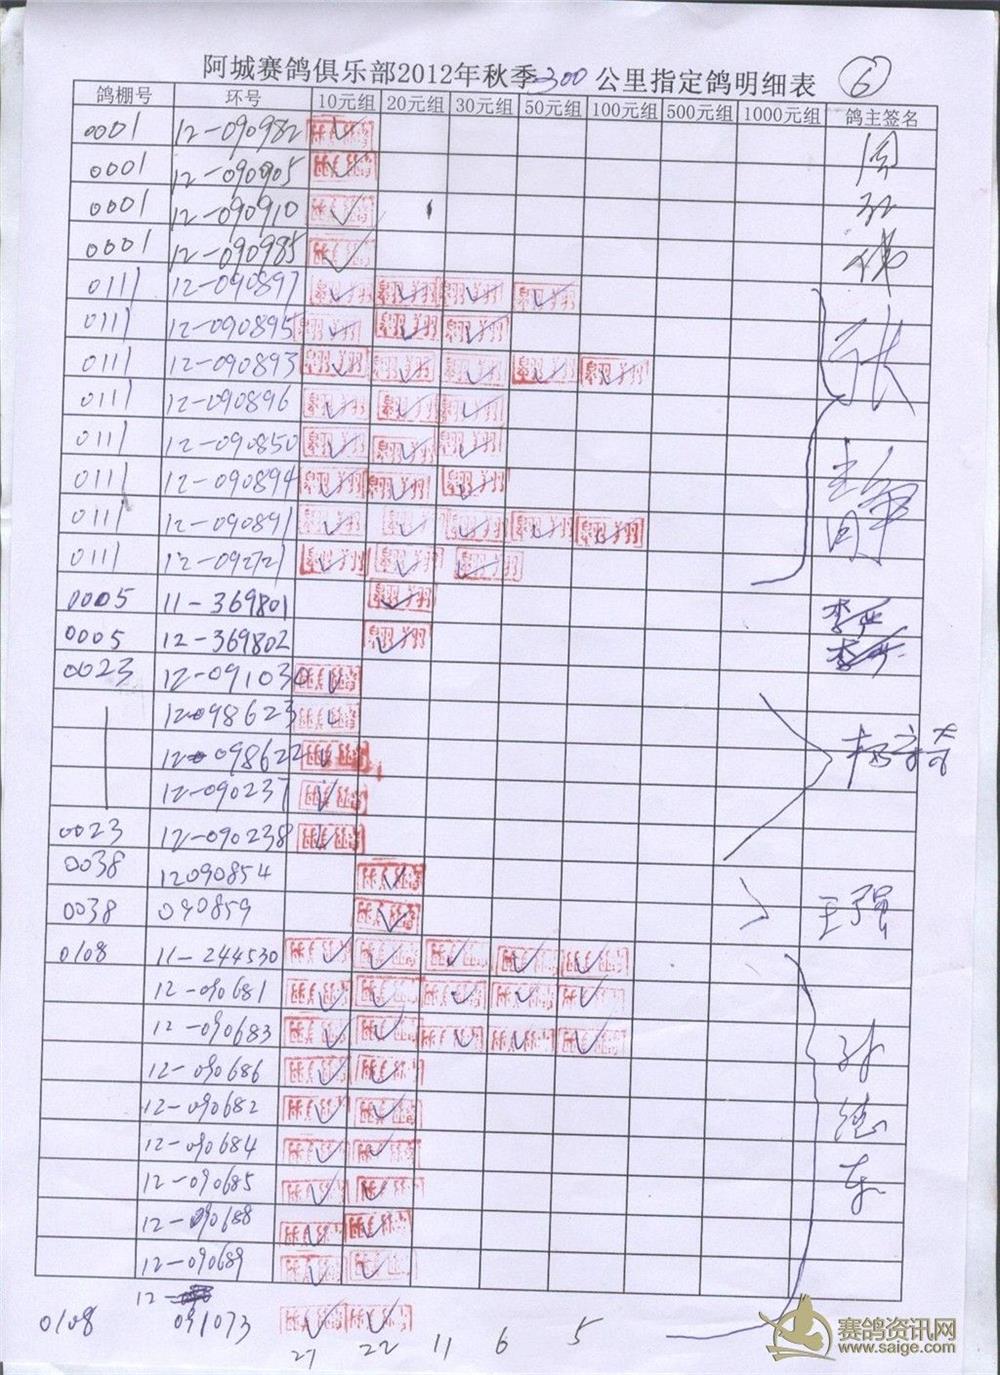 阿城赛鸽俱乐部2012年秋季300公里指定鸽明细表 ⑥
鸽棚号 环号 10元组 20元组 30元组 50元组 100元组 500元组 1000元组 鸽主签名
0001 12-090982 ✓
0001 12-090905 ✓
0001 12-090910 ✓
0001 12-090985 ✓
0111 12-090897 ✓ ✓ ✓ ✓
0111 12-090895 ✓ ✓ ✓
0111 12-090893 ✓ ✓ ✓ ✓ ✓
0111 12-090896 ✓ ✓ ✓
0111 12-090850 ✓ ✓ ✓
0111 12-090894 ✓ ✓ ✓
0111 12-090891 ✓ ✓ ✓ ✓ ✓
0111 12-092721 ✓ ✓ ✓
0005 11-369801 ✓
0005 12-369802 ✓
0023 12-091030 ✓
12-098623 ✓
12-098622 ✓
12-090237 ✓
0023 12-090238 ✓
0038 12090854 ✓
0038 090859 ✓ 王强
0108 11-244530 ✓ ✓ ✓ ✓ ✓
12-090681 ✓ ✓ ✓ ✓ ✓
12-090683 ✓ ✓ ✓ ✓ ✓
12-090686 ✓ ✓
12-090682 ✓ ✓
12-090684 ✓ ✓
12-090685 ✓ ✓
12-090688 ✓ ✓
12-090689 ✓ ✓
孙德东
12-
0108 091073 ✓ ✓
27 22 11 6 5
赛鸽资讯网
www.saige.com